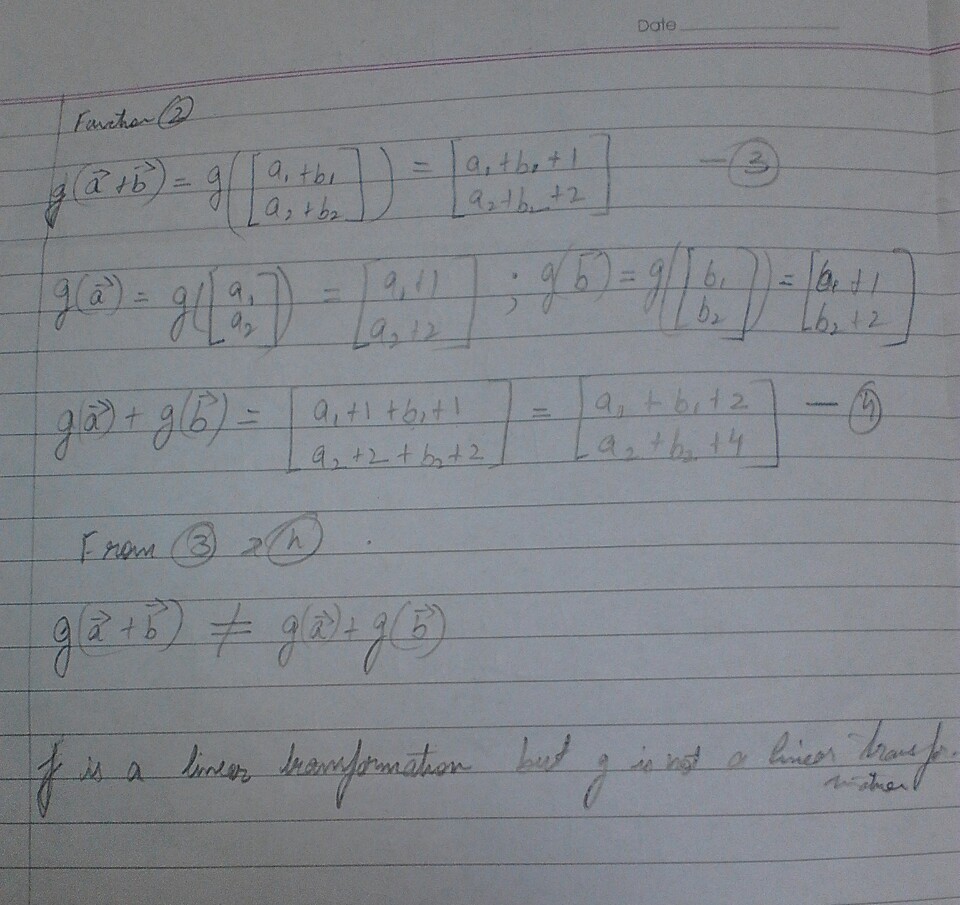 Date
Function ②
g(\vec{a} + \vec{b}) = g([a₁ + b₁; a₂ + b₂]) = [a₁ + b₁ + 1; a₂ + b₂ + 2] — ③
g(\vec{a}) = g([a₁; a₂]) = [a₁ + 1; a₂ + 2] ; g(\vec{b}) = g([b₁; b₂]) = [b₁ + 1; b₂ + 2]
g(\vec{a}) + g(\vec{b}) = [a₁ + 1 + b₁ + 1; a₂ + 2 + b₂ + 2] = [a₁ + b₁ + 2; a₂ + b₂ + 4] — ④
From ③ & ④ .
g(\vec{a} + \vec{b}) ≠ g(\vec{a}) + g(\vec{b})
f is a linear transformation but g is not a linear transfor-
mation